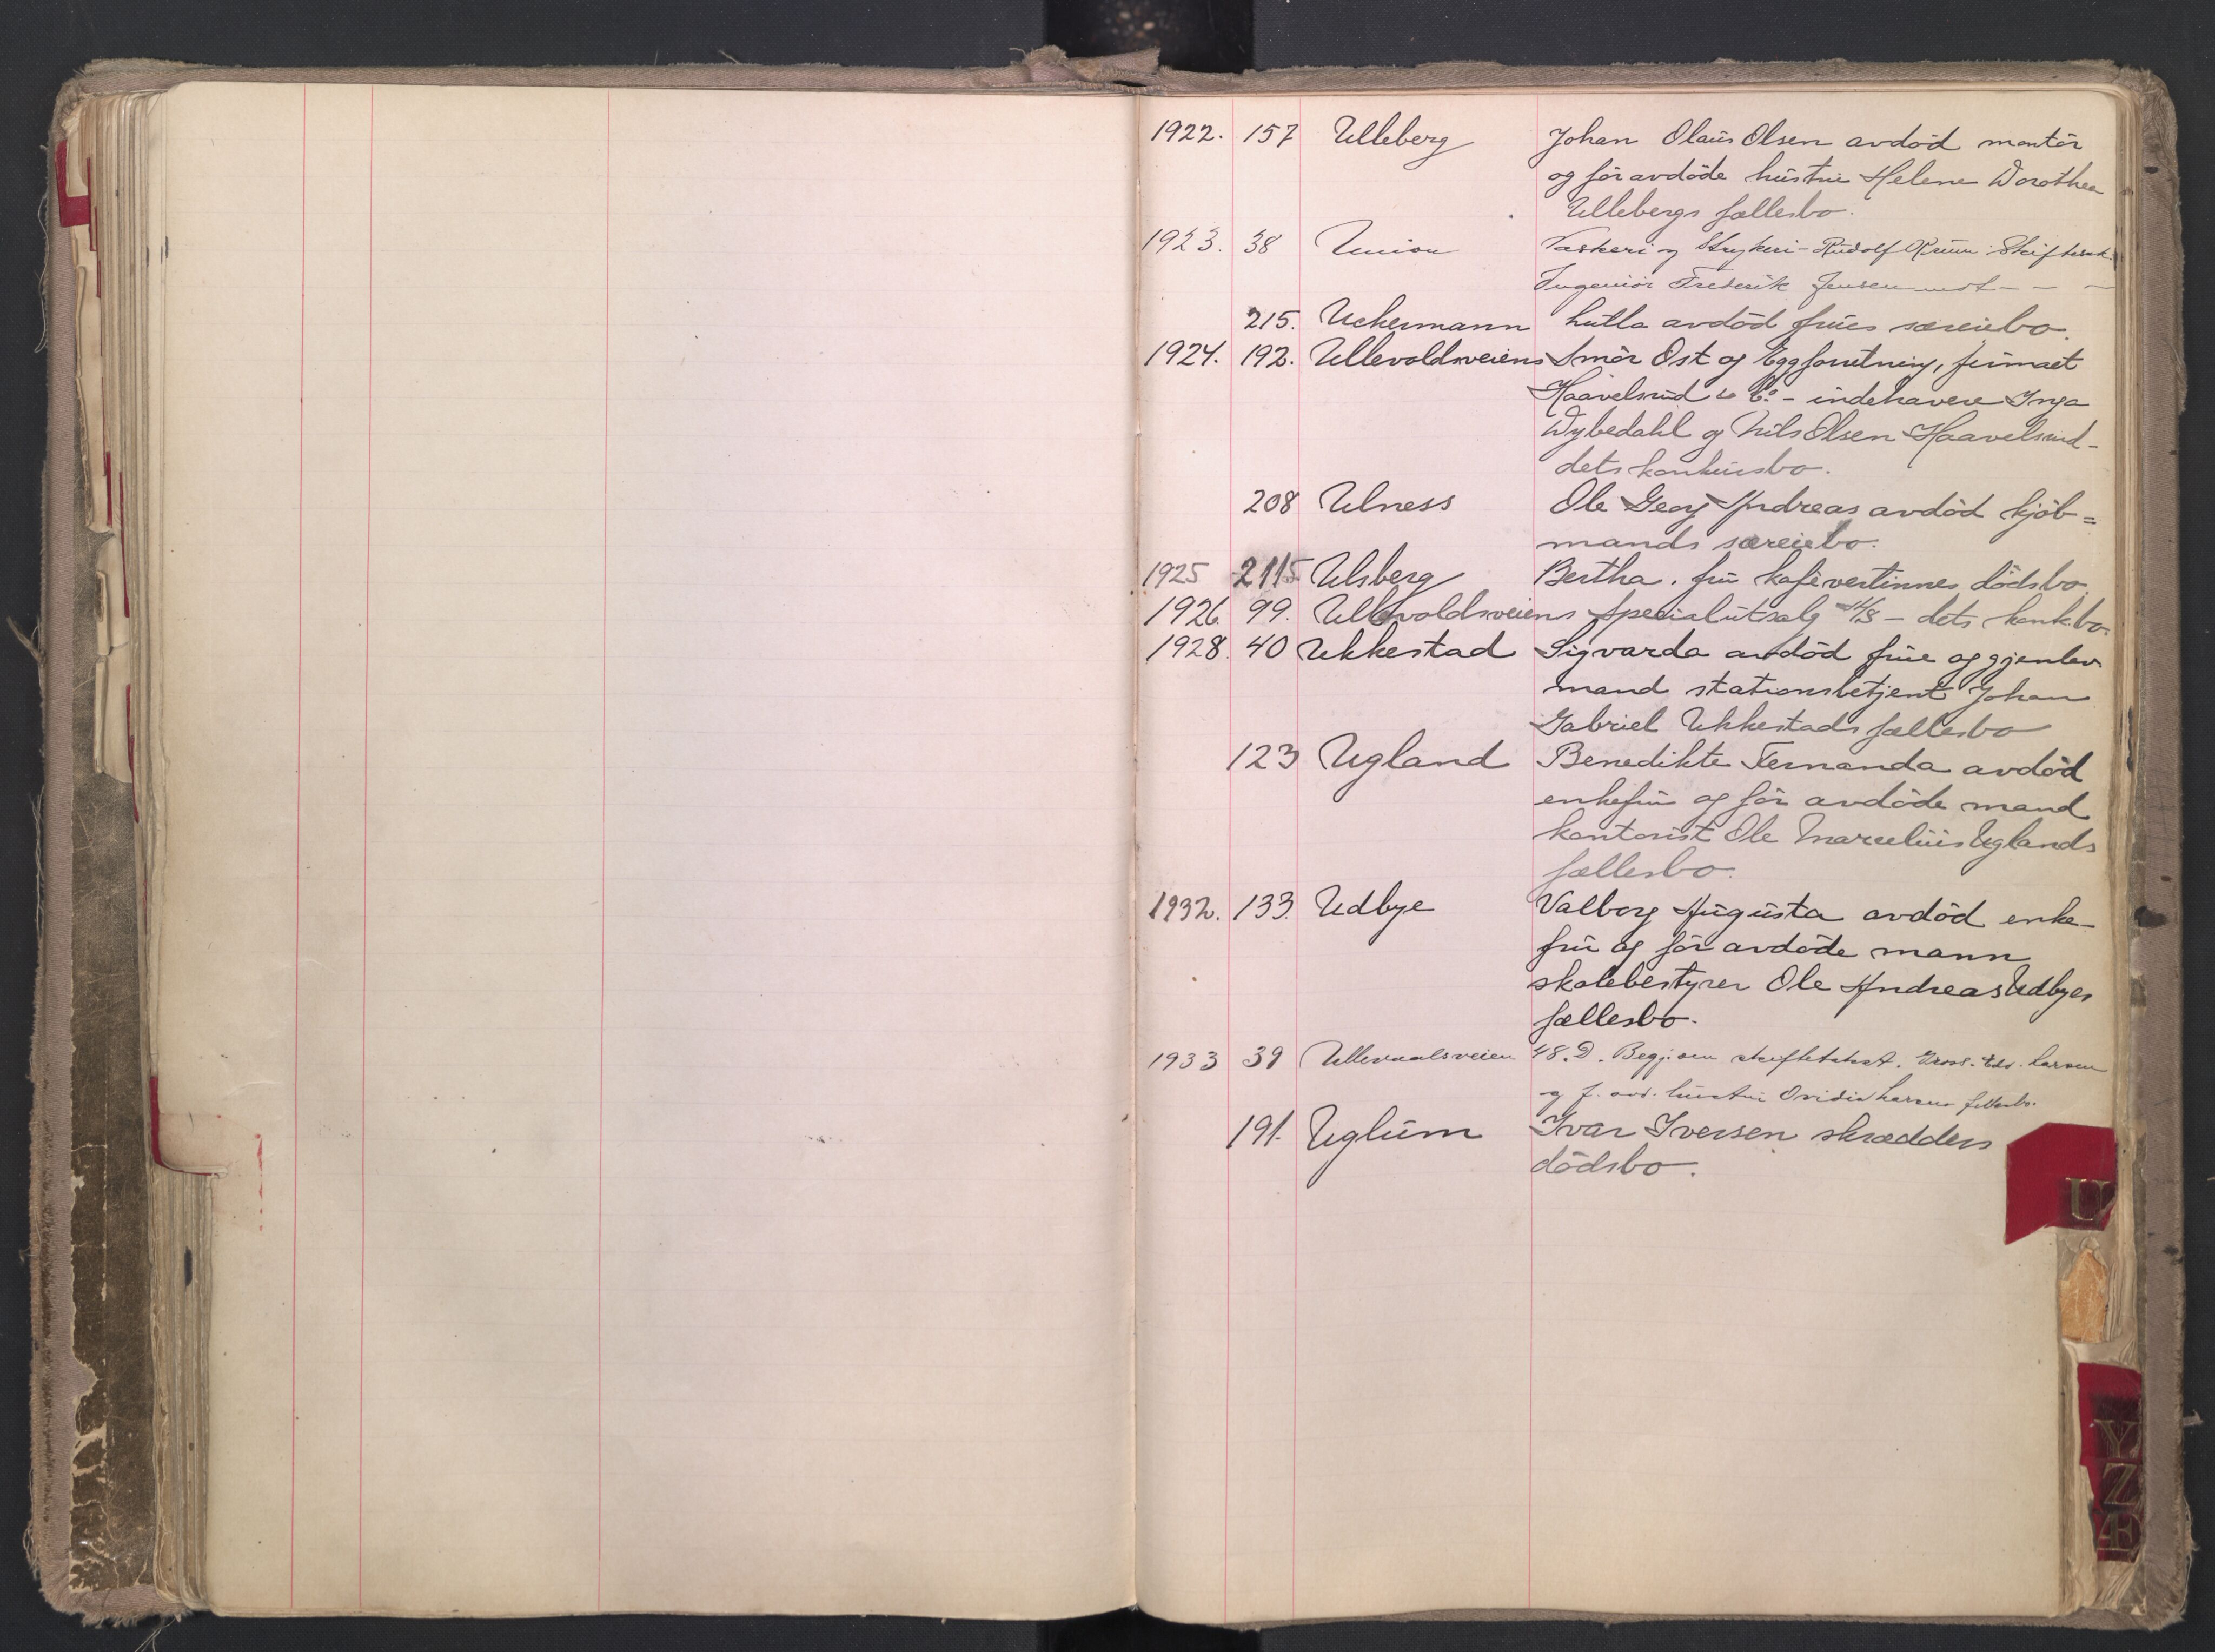 1922. 157 Ulleberg Johan Olaus Olsen avdød montör
og för avdöde hustru Helene Dorothea
Ullebergs fællesbo.
1923. 38 Union Vaskeri og Strykeri - Rudolf Skiftesak
Ingeniör Frederik Jensen mot - - -
215. Uchermann hulla avdöd frues særeiebo.
1924. 192. Ullevoldsveiens Smör Ost og Eggforretning, firmaet
Haavelsrud & Co - indehavere Inga
Dybedahl og Nils Olsen Haavelsrud -
dets konkursbo.
208 Ulness Ole Georg Andreas avdöd kjöb=
mands særeiebo.
1925 2115 Ulsberg Bertha. fru kafévertinnes dödsbo.
1926. 99. Ullevoldsveiens Specialutsalg A/S - dets konk.bo.
1928. 40 Ukkestad Sigvarda avdöd frue og gjenlev.
mand stationsbetjent Johan
Gabriel Ukkestads fællesbo
123 Ugland Benedikte Fernanda avdöd
enkefru og för avdöde mand
kontorist Ole Marcelius Uglands
fællesbo.
1932. 133. Udbye Valborg Augusta avdöd enke-
fru og för avdöde mann
skolebestyrer Ole Andreas Udbyes
fællesbo.
1933 39 Ullevaalsveien 48. D. Begj. om skiftetakst. Gross. Edv. Larsen
og f. avd. hustru Ovidia Larsens fellesbo.
191. Uglum Ivar Iversen skrædders
dödsbo.
U
Y
Z
Æ